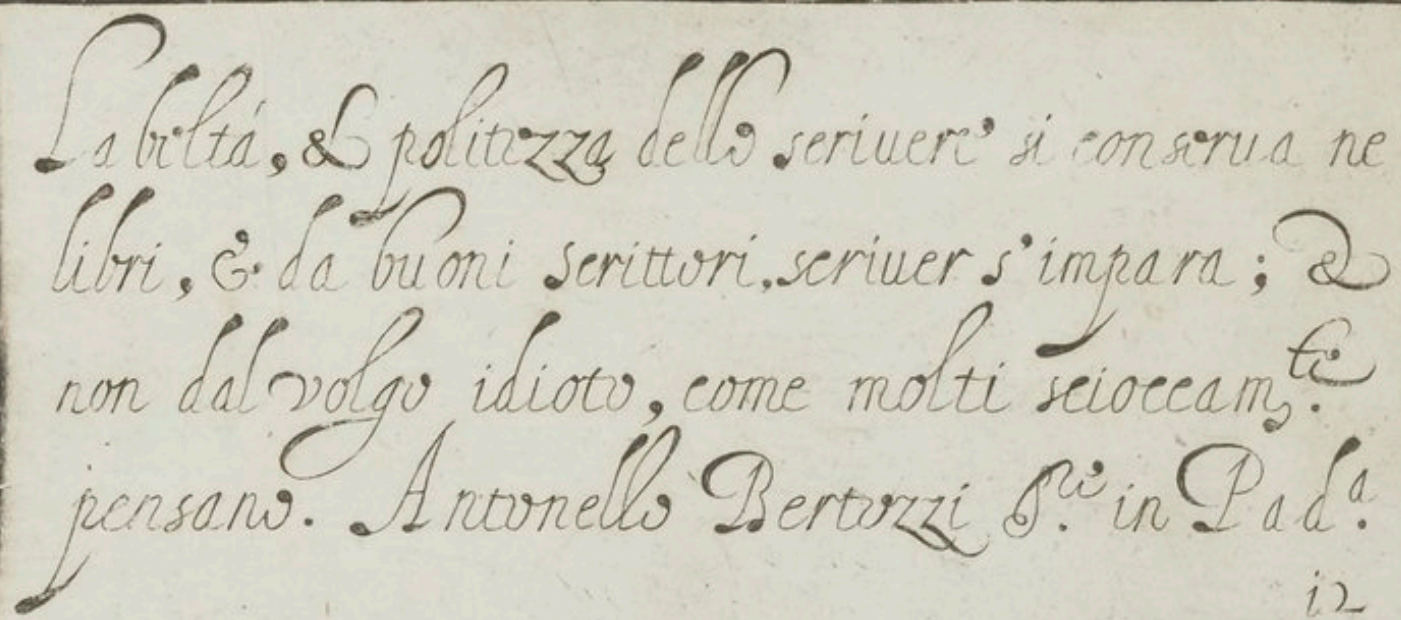 La beltá, & politezza dello scriuere si conserua ne
libri, & da buoni scrittori, scriuer s'impara; &
non dal volgo idioto, come molti scioccam.te
pensano. Antonello Bertozzi S.re in Pad.a
12